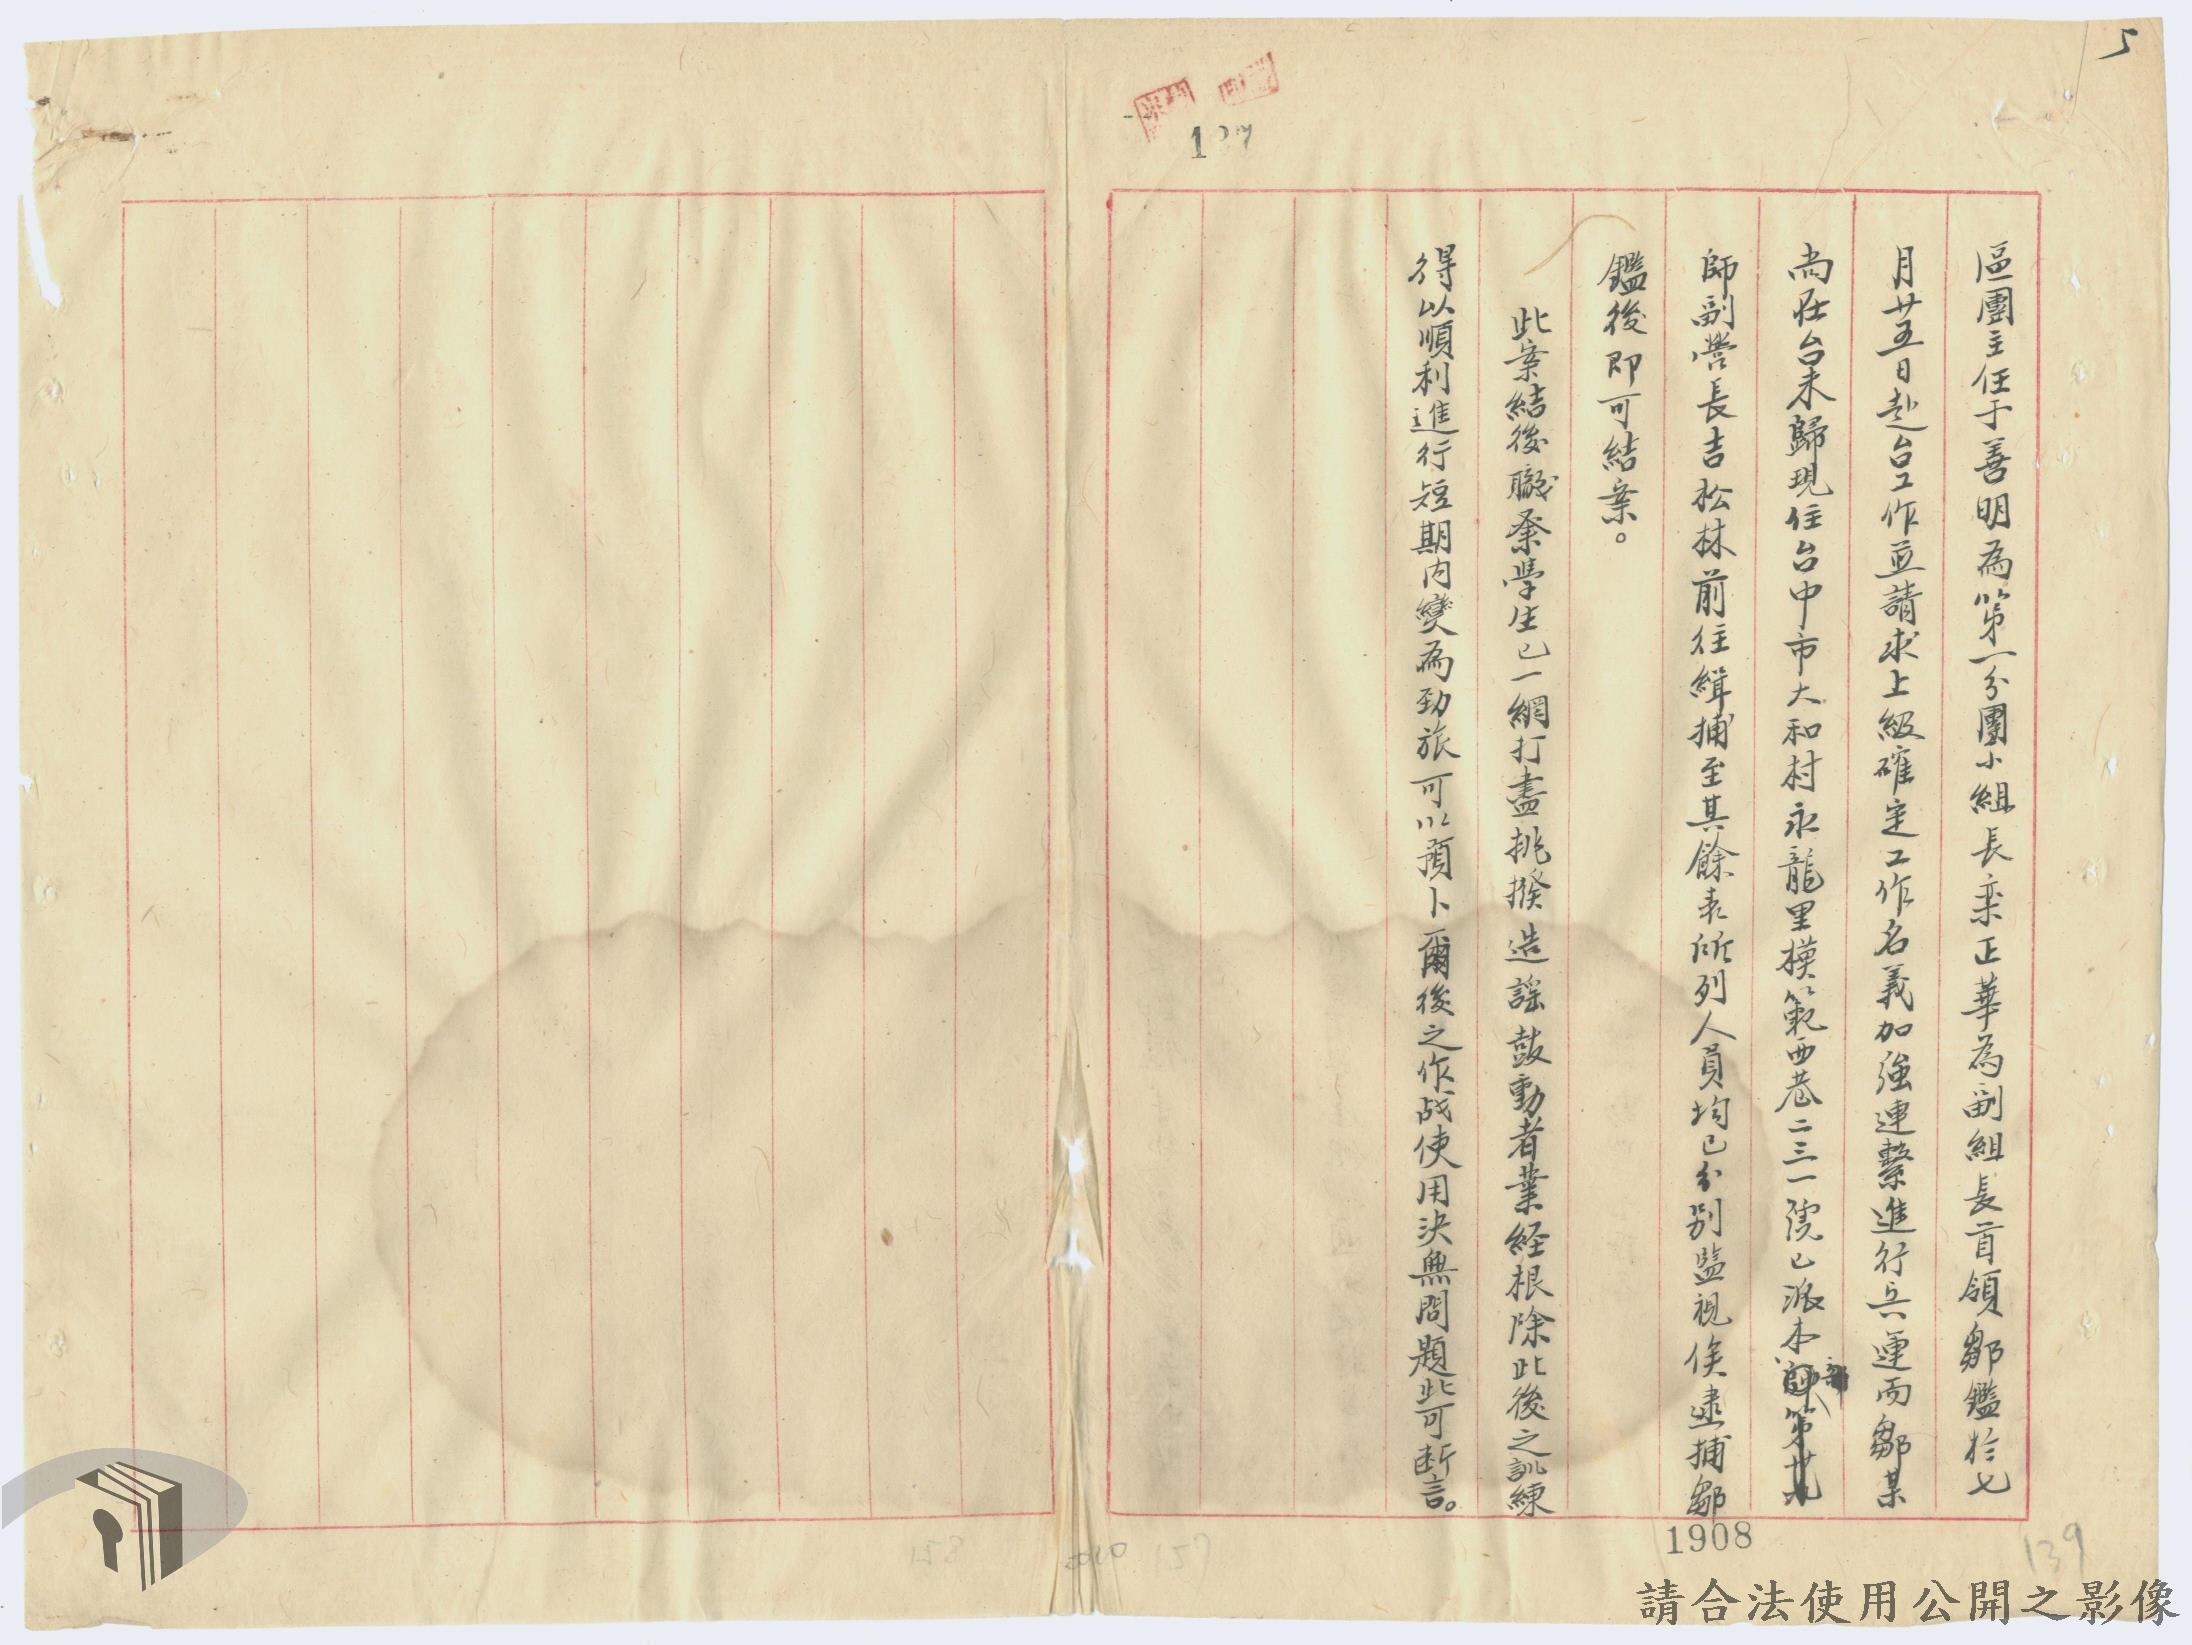 5
區團主任于善明為第一分團小組長栾正華為副組長首領鄒鑑於七
月廿五日赴台工作並請求上級確定工作名義加強連繫進行兵運而鄒某
尚在台未歸現住台中市大和村永龍里模範西巷二三一號已派本部第廿九
師副營長吉松林前往緝捕至其餘表所列人員均已分別監視俟逮捕鄒
鑑後即可結案。
此案結後職案學生已一網打盡挑撥造謠鼓動者業経根除此後之訓練
得以順利進行短期內變為勁旅可以預卜爾後之作战使用決無問題此可断言。
1908
139
157
158
請合法使用公開之影像